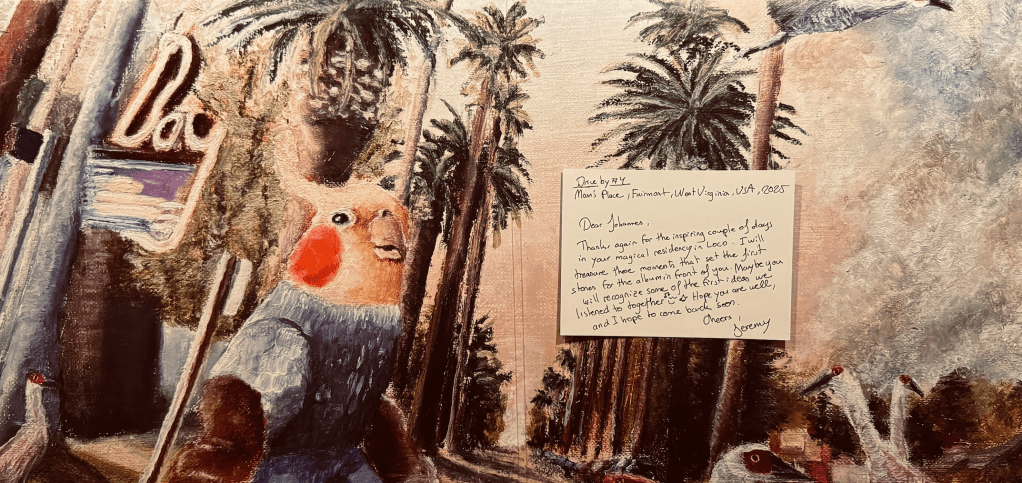 Loco
Drive by #4
Mom's Place, Fairmont, West Virginia, USA, 2025
Dear Johannes,
Thanks again for the inspiring couple of days
in your magical residency in Loco. I will
treasure those moments that set the first
stones for the album in front of you. Maybe you
will recognize some of the first ideas we
listened to together Hope you are well,
and I hope to come back soon.
Cheers,
Jeremy